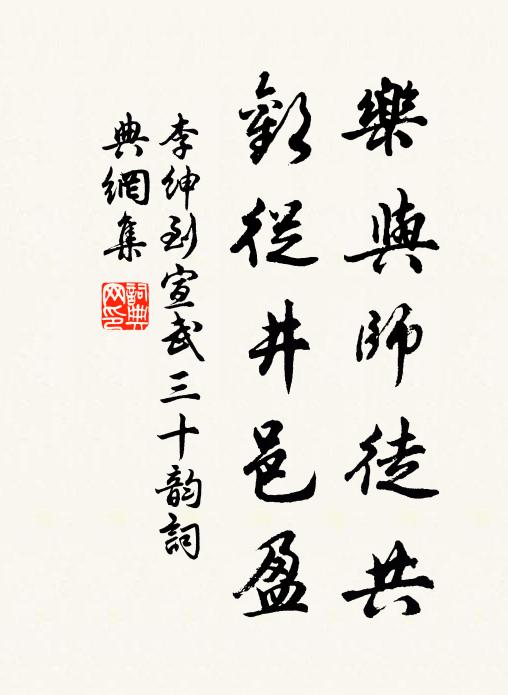 樂與師徒共
歡從井邑盈
李紳到宣武三十韵詞
典網集
詞典网印